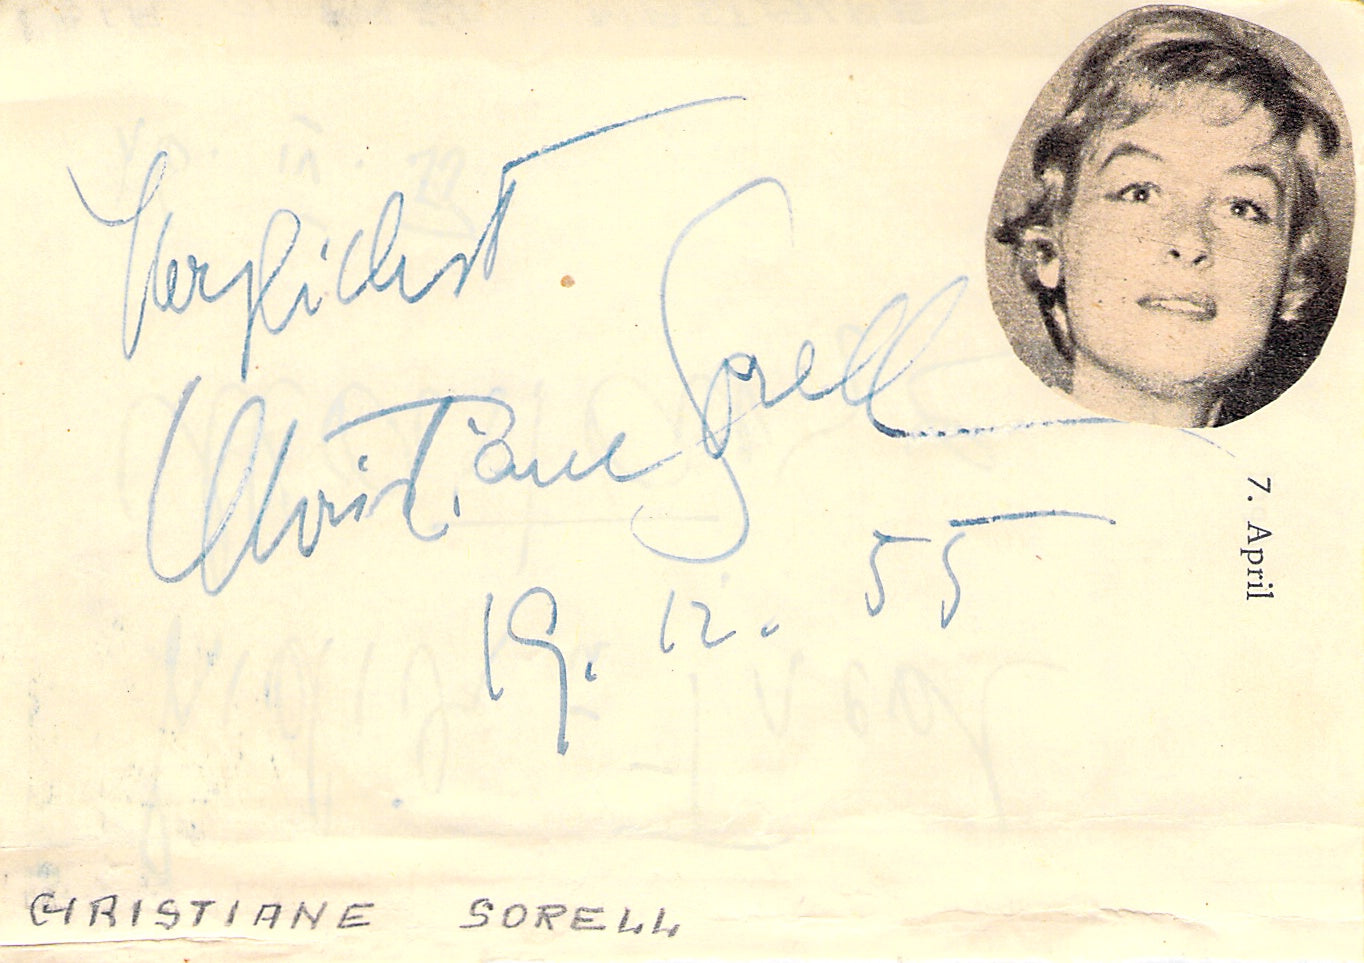 Herzlichst
Christiane Sorell
19. 12. 55
7. April
CHRISTIANE SORELL